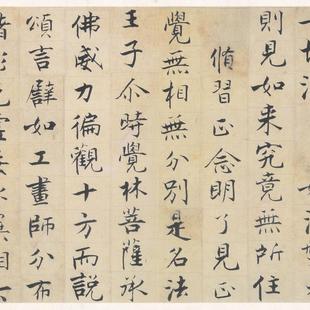 一切法
則見如来究竟無所住
脩習正念明了見正
覺無相無分別是名法
王子尒時覺林菩薩承
佛威力徧觀十方而說
頌言譬如工畫師分布
異相